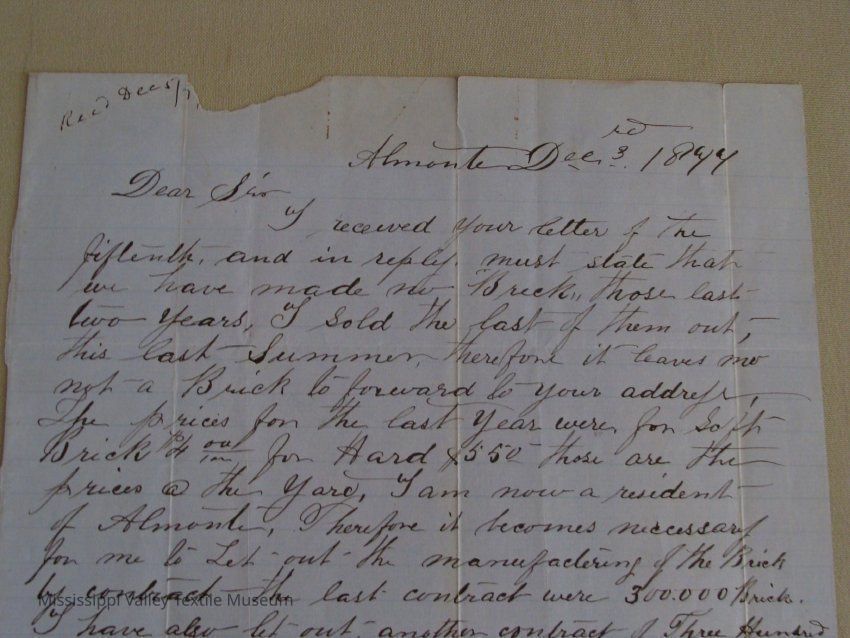 Rec'd Dec 5/7
Almonte Dec 3rd 1877
Dear Sir
I received your letter of the
fiftenth, and in reply, must state that
we have made no Brick, those last
two years, I sold the last of them out,
this last Summer, therefore it leaves me
not a Brick to forward to your address,
The prices for the last year were for Soft
Brick $4 00/100 for Hard $5 50 those are the
prices @ the Yard, I am now a resident
of Almonte, Therefore it becomes necessary
for me to Let out the manufactering of the Brick
by contract the last contract were 300.000 Brick.
I have also let out another contract of Three Hundred
Mississippi Valley Textile Museum